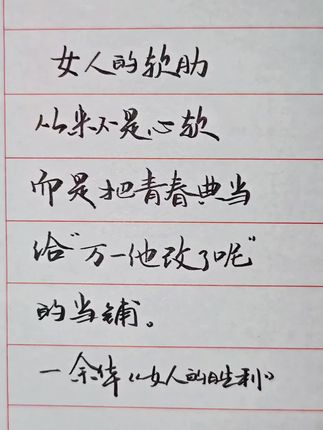 女人的软肋
从来不是心软
而是把青春典当
给"万一他改了呢"
的当铺。
—余华《女人的胜利》